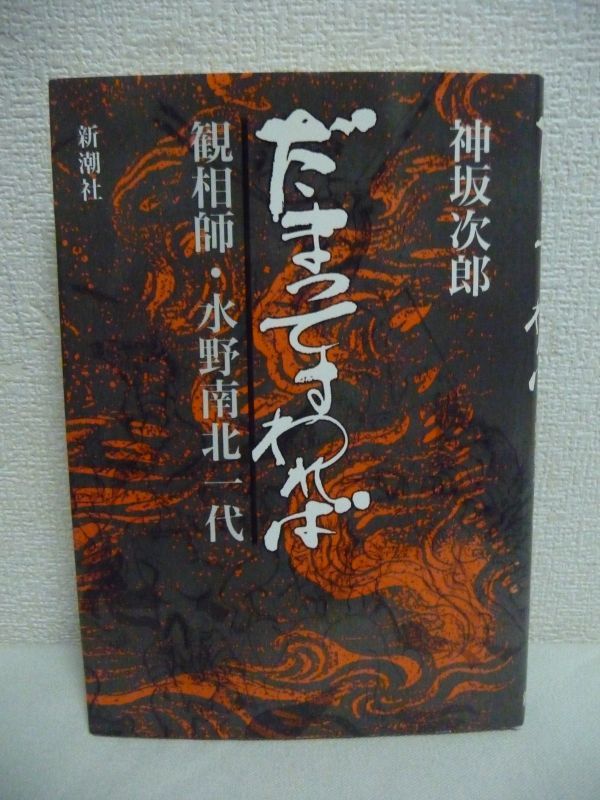 神坂次郎
だまってすわれば
観相師・水野南北一代
新潮社